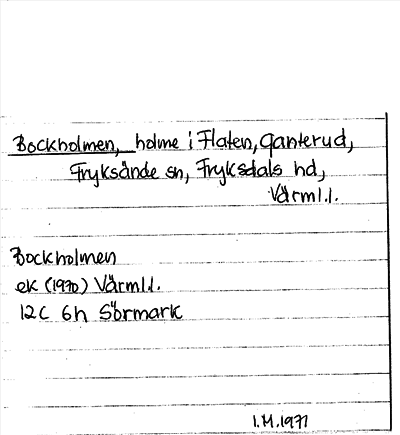 Bockholmen, holme i Flaten, Ganterud,
Fryksände sn, Fryksdals hd,
Värml.l.
Bockholmen
ek (1970) Värml.l.
12C 6h Sörmark
I.M.1971